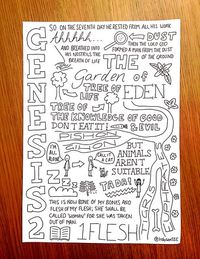 SO ON THE SEVENTH DAY HE RESTED FROM ALL HIS WORK
GENESIS 2
Ahhhhhh...
DUST
THEN THE LORD GOD
FORMED A MAN FROM THE DUST
OF THE GROUND
AND BREATHED INTO
HIS NOSTRILS THE
BREATH OF LIFE
THE
Garden of
EDEN
TREE OF
LIFE
TREE OF
THE KNOWLEDGE OF GOOD
& EVIL
DON'T EAT IT!
I'M ALL
ALONE
CALL IT
A CAT
BUT
ANIMALS
AREN'T
SUITABLE
TADA!
THIS IS NOW BONE OF MY BONES AND
FLESH OF MY FLESH; SHE SHALL BE
CALLED 'WOMAN' FOR SHE WAS TAKEN
OUT OF MAN.
1 FLESH!